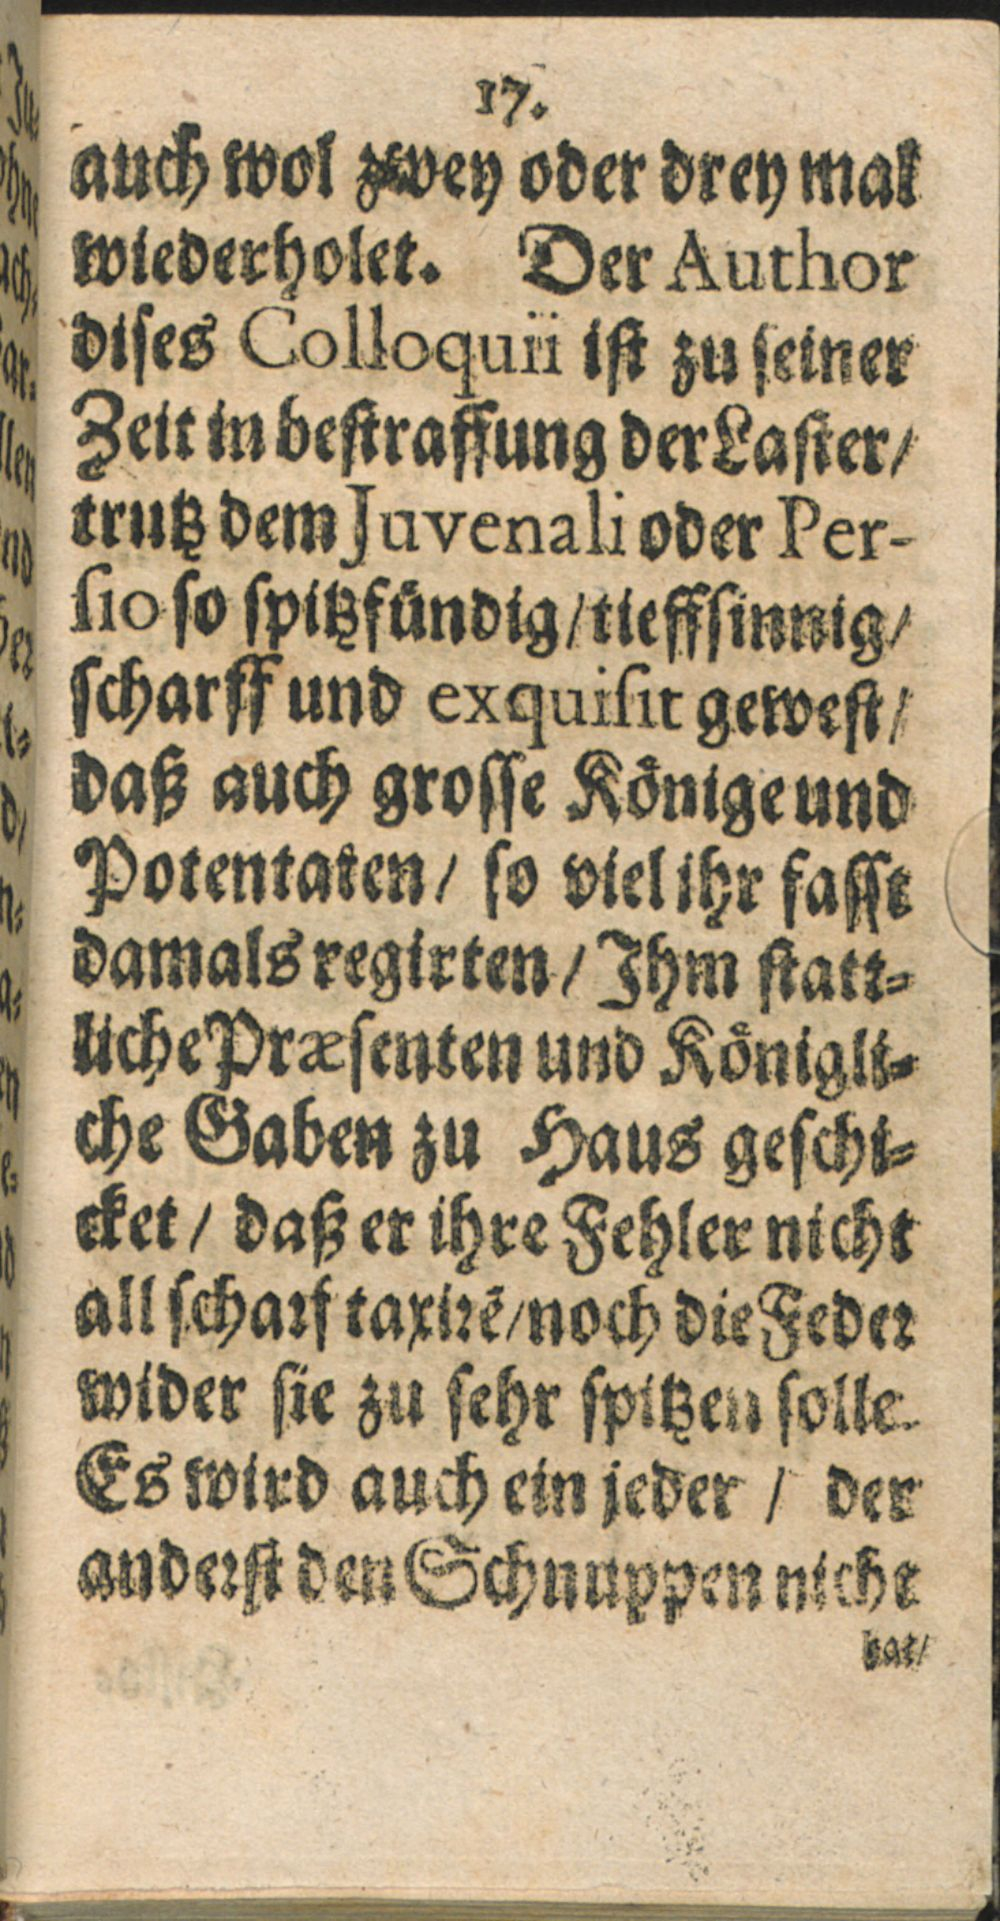 17.
auch wol zwey oder drey mal
wiederholet. Der Author
dises Colloquii ist zu seiner
Zeit in bestraffung der Laster/
trutz dem Juvenali oder Per-
sio so spitzfündig/ tieffsinnig/
scharff und exquisit gewest/
daß auch grosse Könige und
Potentaten/ so viel ihr fasst
damals regirten/ Ihm statt-
liche Præsenten und Königli-
che Gaben zu Haus geschi-
cket/ daß er ihre Fehler nicht
all scharf taxirē/ noch die Feder
wider sie zu sehr spitzen solle.
Es wird auch ein jeder / der
anderst den Schnuppen nicht
hat/